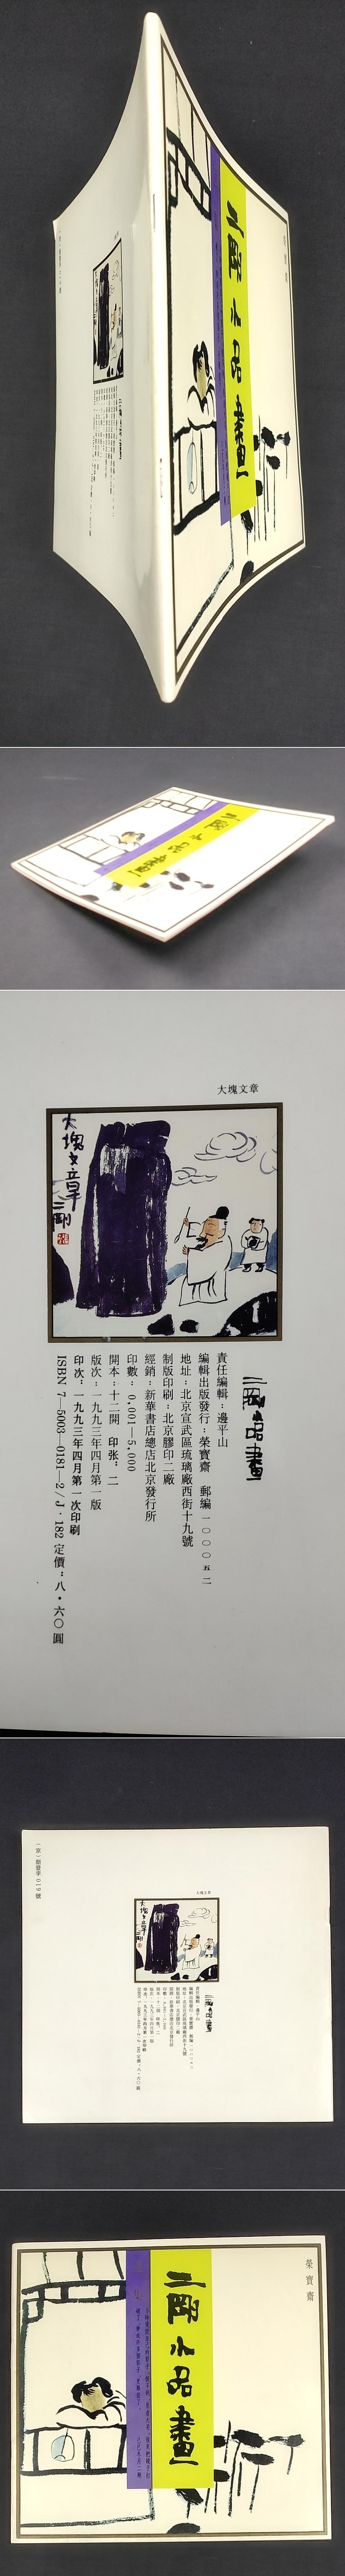 二剛小品畫
二剛小品畫
大塊文章
大塊文章
二剛
二剛小品畫
責任編輯：邊平山
編輯出版發行：榮寶齋　郵編 一〇〇〇五二
地址：北京宣武區琉璃廠西街十九號
制版印刷：北京膠印二廠
經銷：新華書店總店北京發行所
印數：0,001—5,000
開本：十二開　印张：二
版次：一九九三年四月第一版
印次：一九九三年四月第一次印刷
ISBN 7—5003—0181—2/J·182 定價：八·六〇圓
大塊文章
大塊文章
二剛
二剛小品畫
（京）新登字019號
榮寶齋
二剛小品畫